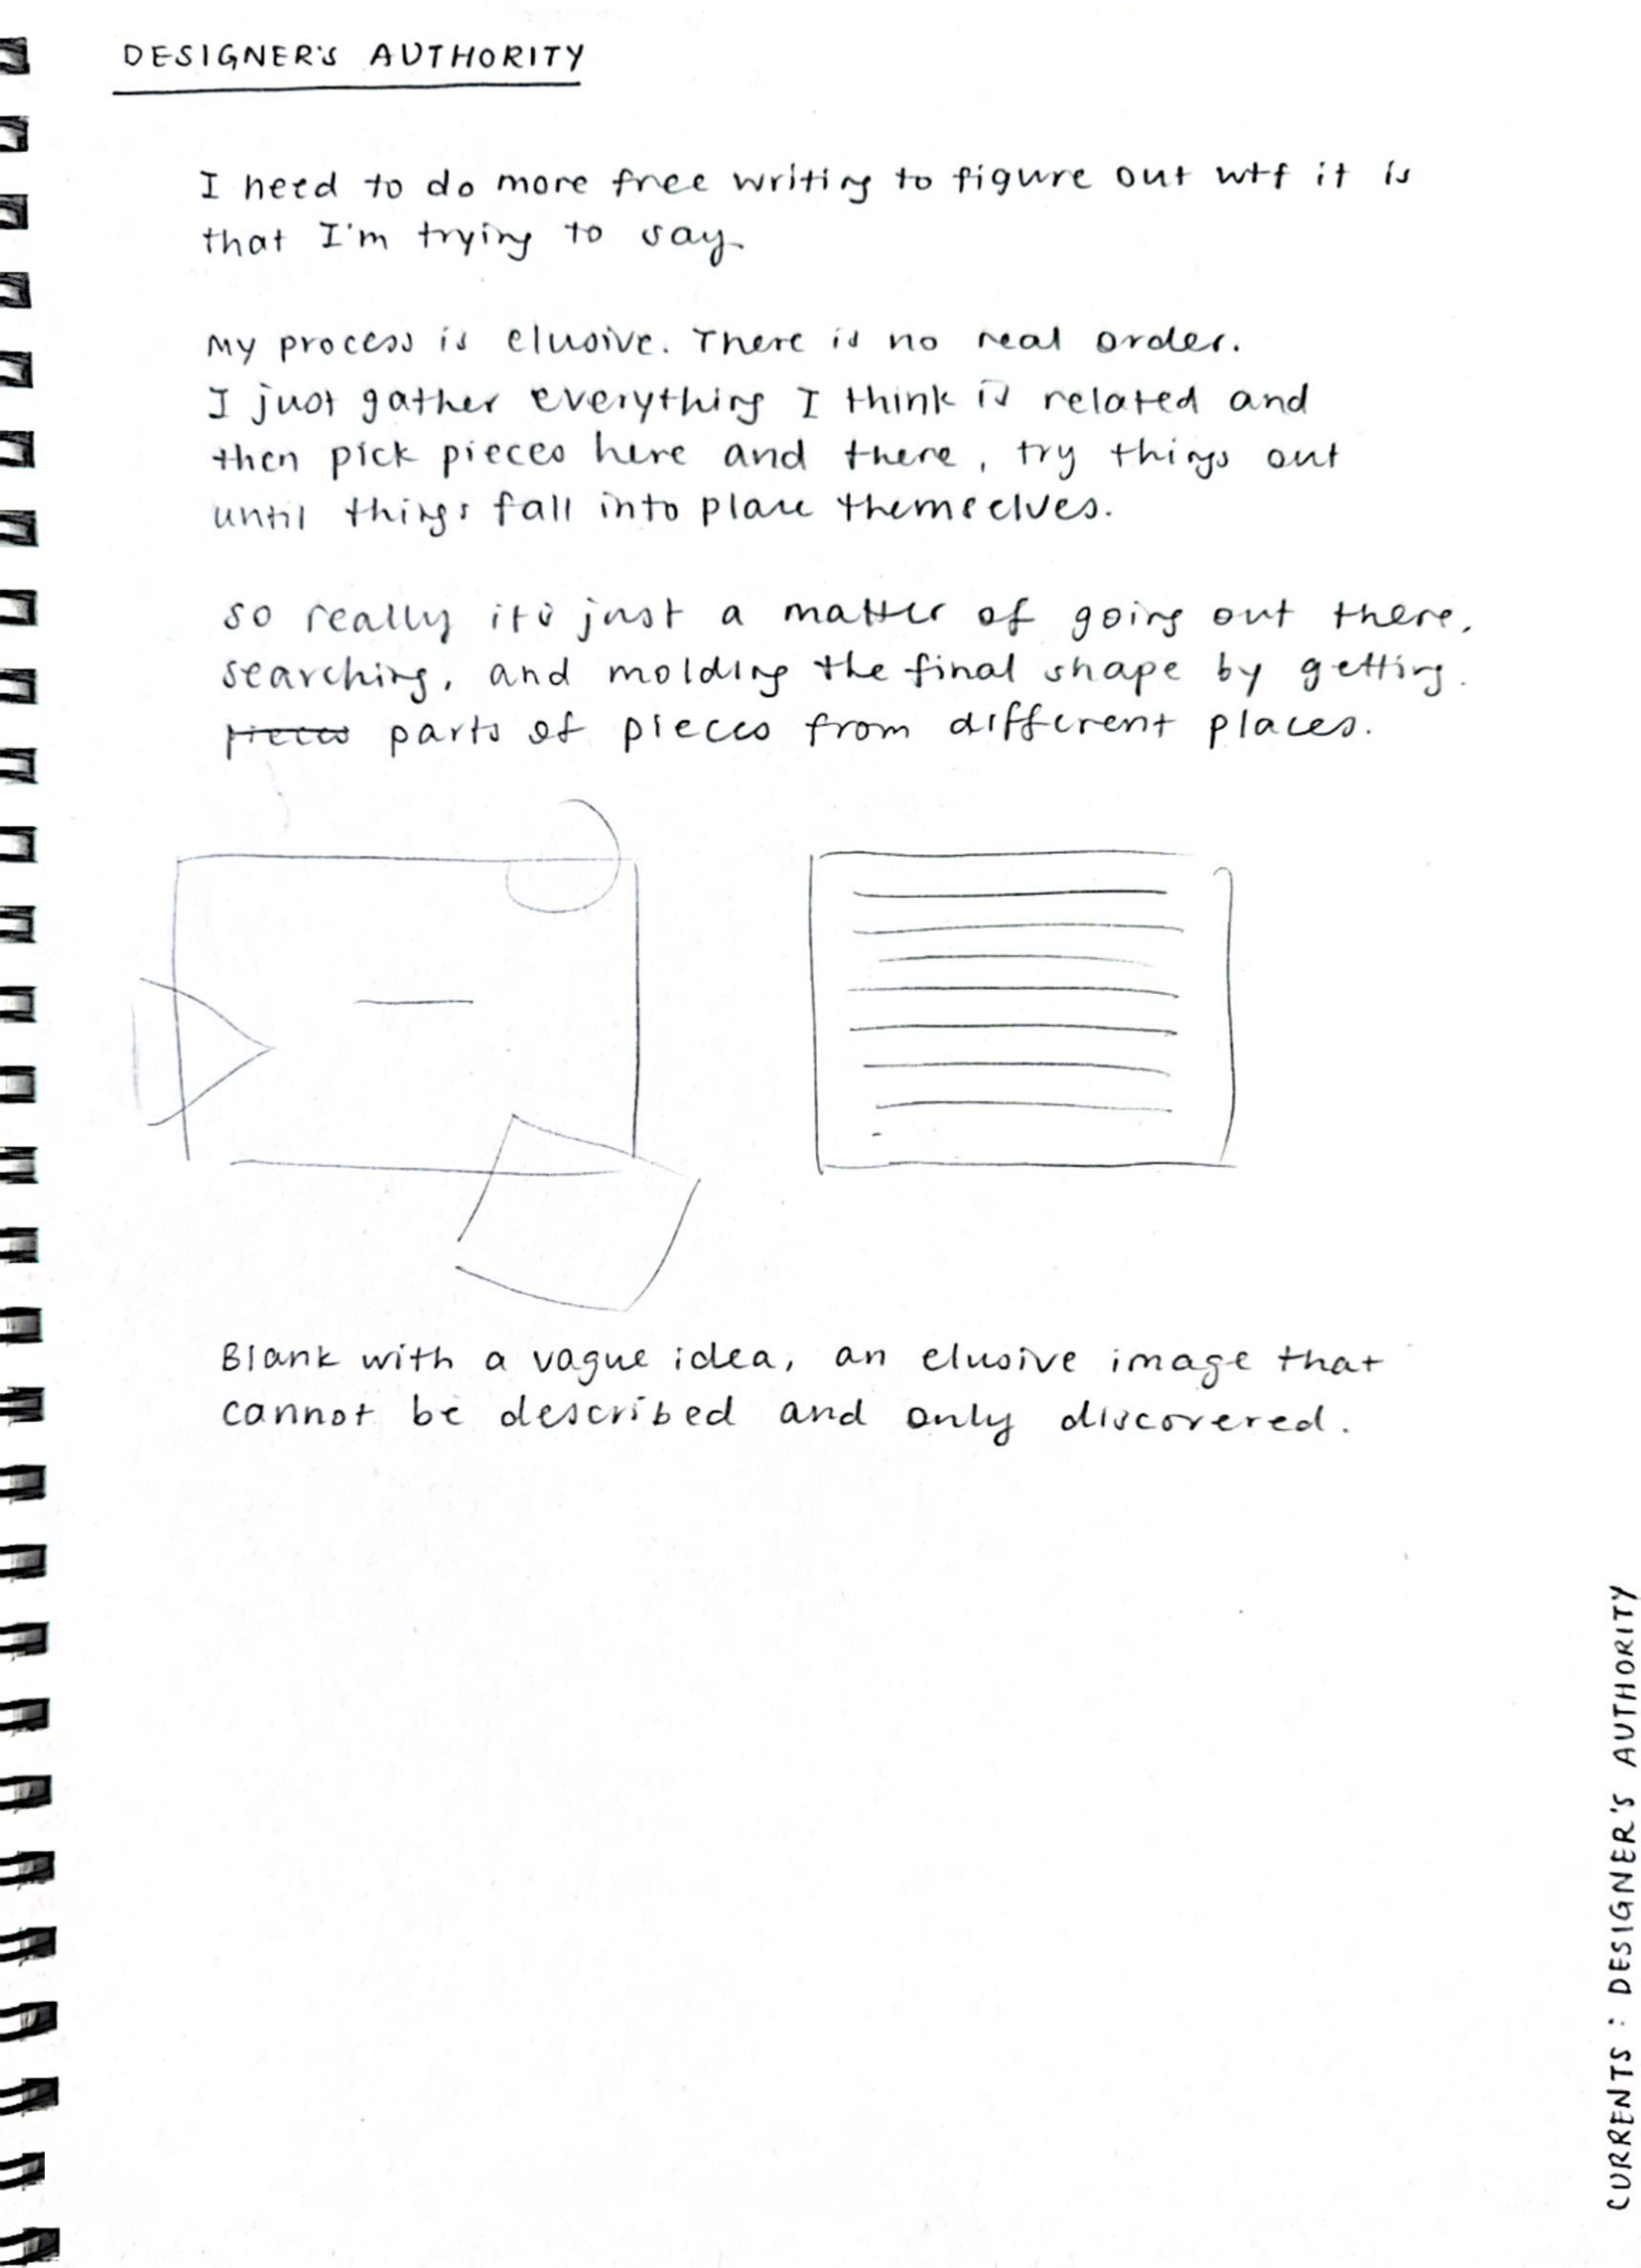 DESIGNER'S AUTHORITY
I need to do more free writing to figure out wtf it is
that I'm trying to say.
My process is elusive. There is no real order.
I just gather everything I think is related and
then pick pieces here and there, try things out
until things fall into place themselves.
so really it's just a matter of going out there,
searching, and molding the final shape by getting
pieces parts of pieces from different places.
Blank with a vague idea, an elusive image that
cannot be described and only discovered.
CURRENTS : DESIGNER'S AUTHORITY